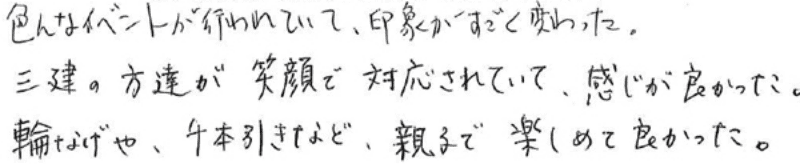 色んなイベントが行われていて、印象がすごく変わった。
三建の方達が笑顔で対応されていて、感じが良かった。
輪なげや、千本引きなど、親まで楽しめて良かった。